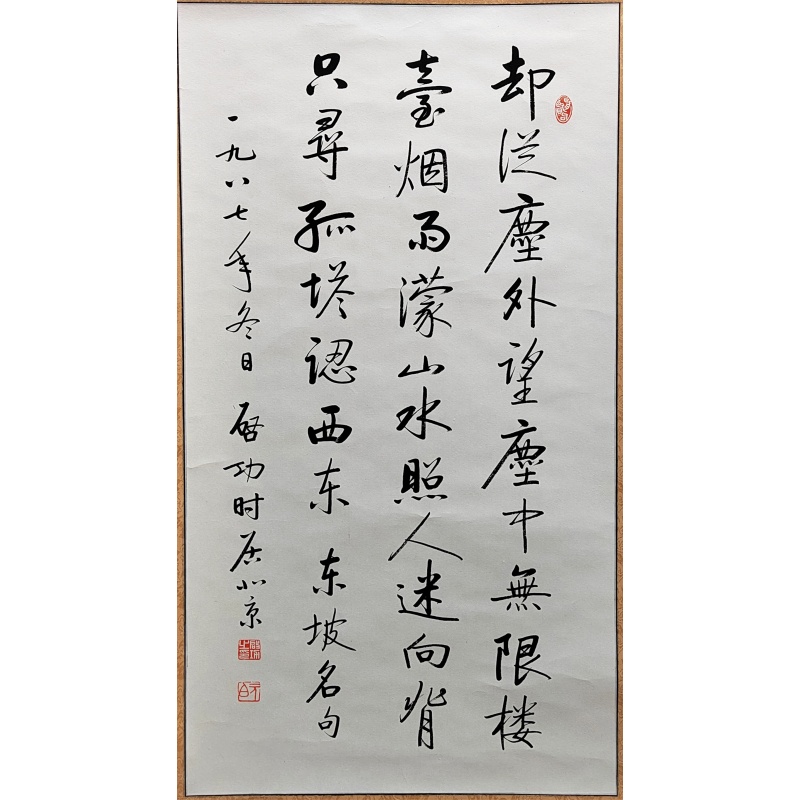 却从塵外望塵中無限楼
臺烟雨濛山水照人迷向背
只尋孤塔認西东 东坡名句
一九八七年冬日 啓功时居北京